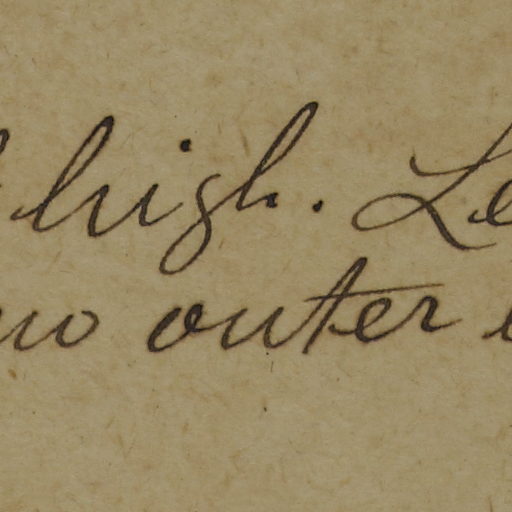 high. Le
no outer